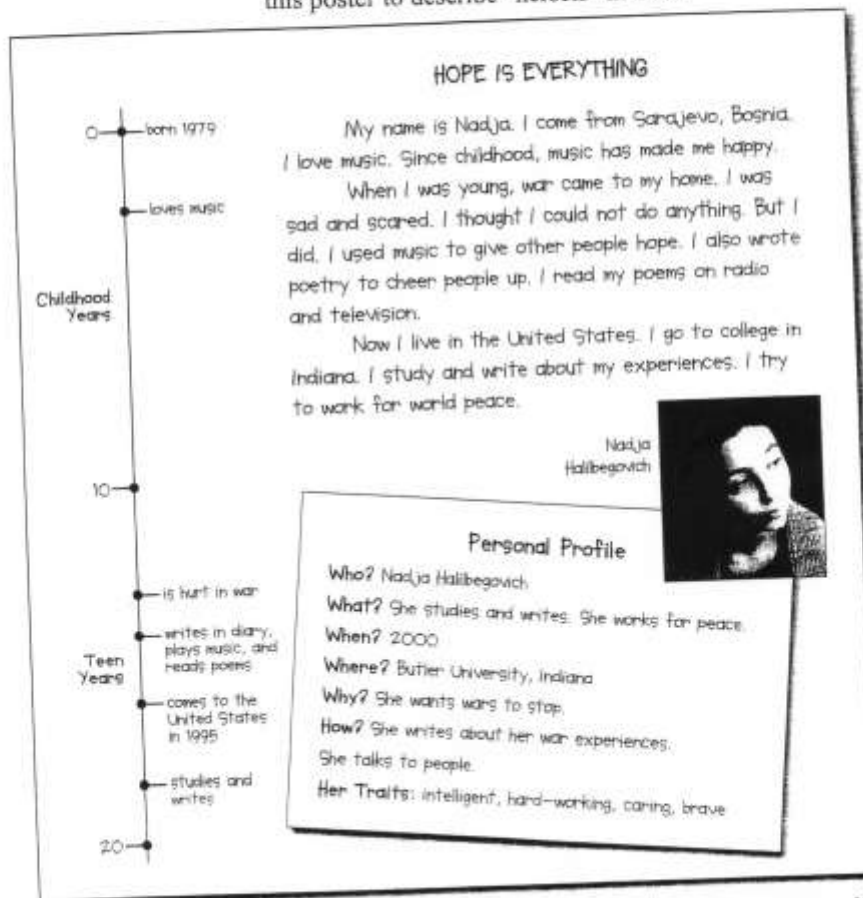 this poster to describe
HOPE IS EVERYTHING
My name is Nadja. I come from Sarajevo, Bosnia.
I love music. Since childhood, music has made me happy.
When I was young, war came to my home. I was
sad and scared. I thought I could not do anything. But I
did. I used music to give other people hope. I also wrote
poetry to cheer people up. I read my poems on radio
and television.
Now I live in the United States. I go to college in
Indiana. I study and write about my experiences. I try
to work for world peace.
Nadja
Halibegovich
0
born 1979
loves music
Childhood
Years
10
is hurt in war
writes in diary,
plays music, and
reads poems
Teen
Years
comes to the
United States
in 1995
studies and
writes
20
Personal Profile
Who? Nadja Halibegovich
What? She studies and writes. She works for peace.
When? 2000
Where? Butler University, Indiana
Why? She wants wars to stop.
How? She writes about her war experiences.
She talks to people.
Her Traits: intelligent, hard-working, caring, brave